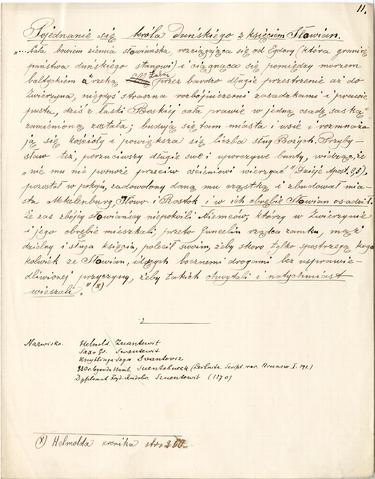 11.
Pojednanie się króla Duńskiego z księciem Słowian.
"Cała bowiem ziemia słowiańska, rozciągająca się od Egdory (która granicę
państwa duńskiego stanowi) i ciągnąca się pomiędzy morzem
bałtyckiem a rzeką przez bardzo długie przestrzenie aż do
Zwierzyna, niegdyś straszna rozbójniczemi zasadzkami i prawie
pusta, dziś z łaski Boskiej cała prawie w jedną osadę saską
zamienioną została; budują się tam miasta i wsie i rozmnaża-
ją się kościoły i powiększa się liczba sług Bożych. Przyby-
sław też, porzuciwszy długie swe i uporczywe bunty, wiedząc, że
"nie mu nie pomoże przeciw ościeniowi wierzgać" (Dzieje Apost. 9,5),
został w pokoju, zadowolony daną mu cząstką i zbudował mia-
sta Meklenburg, Ilowo i Rostok i w ich obrębie Słowian osadził.
Że zaś zbójcy słowiańscy niepokoili Niemców, którzy w Zwierzynie
i jego obrębie mieszkali, przeto Guncelin rządca zamku, mąż
dzielny i sługa księcia, polecił swoim, żeby skoro tylko spostrzegą kogo
kolwiek ze Słowian, idących bocznemi drogami bez usprawie-
dliwionej przyczyny, żeby takich chwytali i natychmiast
wieszali." x)
Nazwisko. Helmold Zuantewit
Saxo Gr. Svantovit
Knytlinga Saga Svantaviz
Dyplomat Szuentewit (1170)
x) Helmolda kronika str.